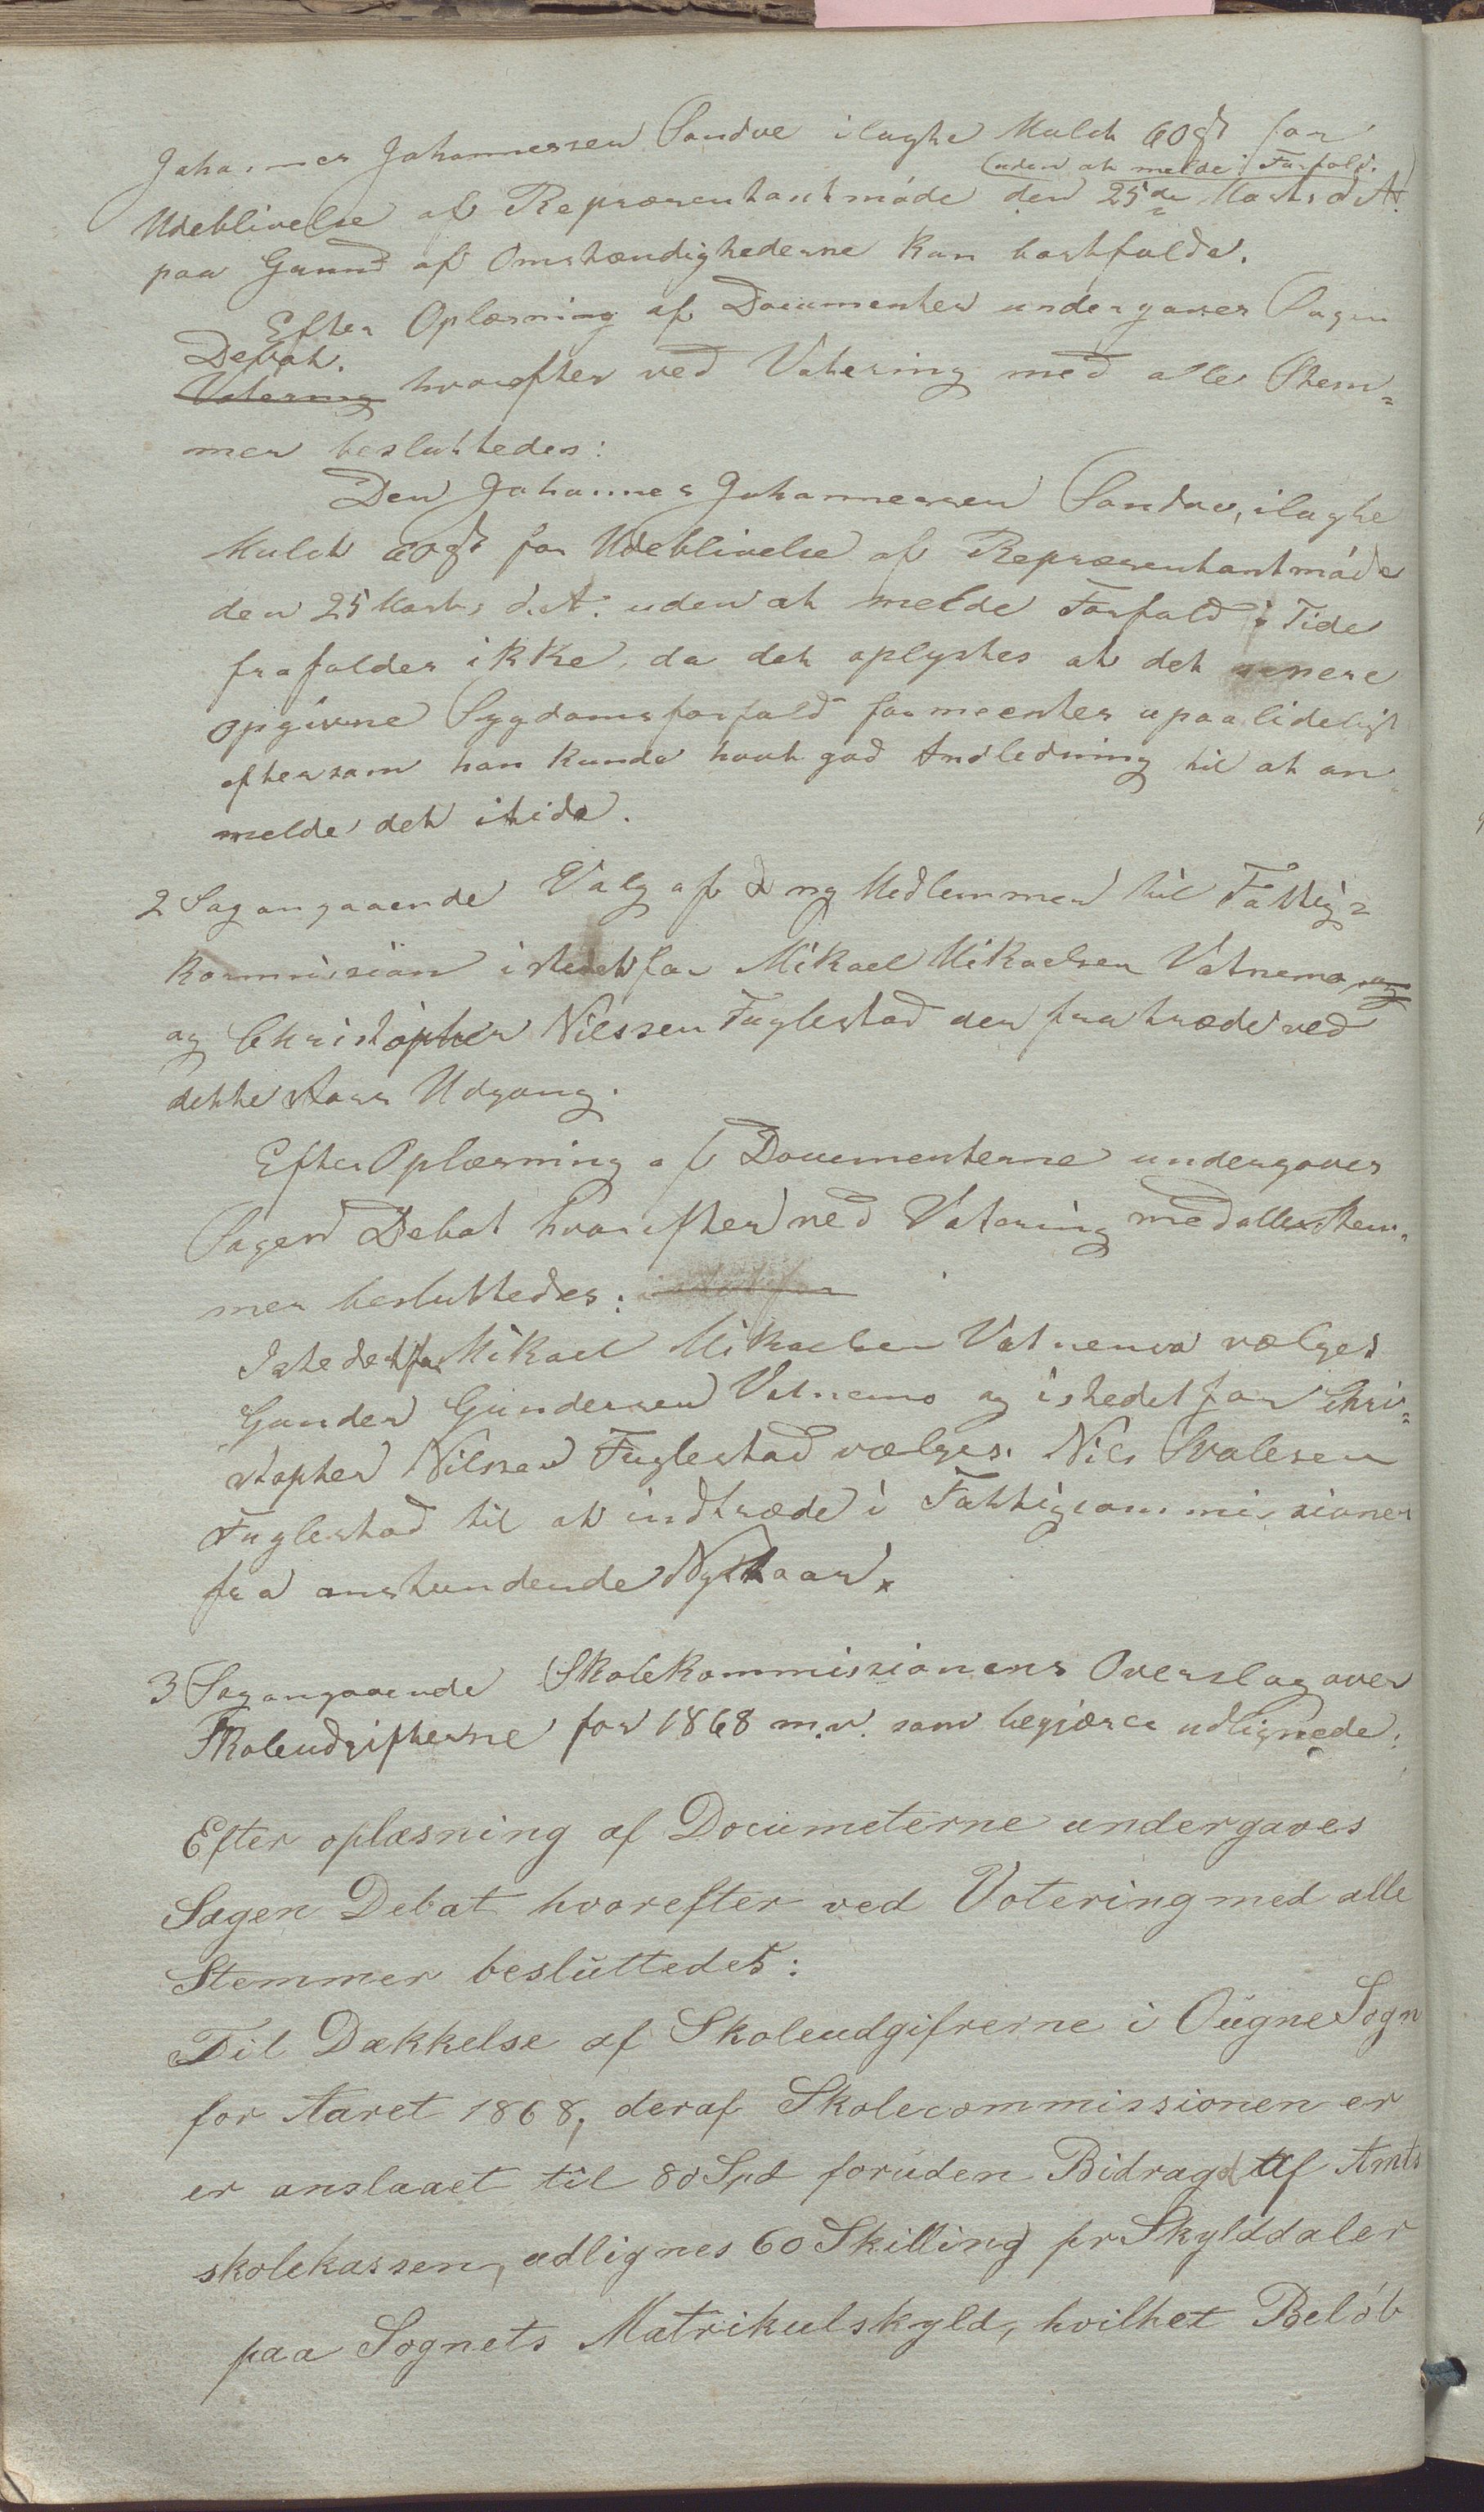 Johannes Johannessen Sandve ilagte Mulct 60 s for
(uden at melde Forfald.)
Udeblivelse af Repræsentantmøde den 25de Marts d. A.
paa Grund af Omstændighederne kan bortfalde.
Efter Oplæsning af Documenter undergaves Sagen
Debat.
Votering hvorefter ved Votering med alle Stem-
mer besluttedes:
Den Johannes Johannessen Sandve, ilagte
Mulct 60 s for Udeblivelse af Repræsentantmøde
den 25 Marts d. A. uden at melde Forfald i Tide
frafaldes ikke, da det oplystes at det senere
opgivne Sygdomsforfald formeentes upaalideligt
eftersom han kunde havt god Andledning til at an-
melde det itide.
2 Sag angaaende Valg af 2 ny Medlemmer til Fattig-
kommission istedetfor Mikael Mikaelsen Vatnemo og
og Christopher Nilssen Fuglestad der fratræde ved
dette Aars Udgang.
Efter Oplæsning af Documenterne undergaves
Sagen Debat hvorefter ved Votering med alle Stem-
mer besluttedes: istedetfor
Istedetfor Mikael Mikaelsen Vatnemo vælges
Gunder Gundersen Vatnemo og istedet for Chri-
stopher Nilssen Fuglestad vælges Nils Svalesen
Fuglestad til at indtræde i Fattigcommissionen
fra anstundende Nyttaar.
3 Sag angaaende Skolekommissionens Overslag over
Skoleudgifterne for 1868 m. v. som begjæres udlignede.
Efter oplæsning af Documeterne undergaves
Sagen Debat hvorefter ved Votering med alle
Stemmer besluttedes:
Til Dækkelse af Skoleudgifrerne i Ougne Sogn
for Aaret 1868, deraf Skolecommissionen er
er anslaaet til 80 Spd foruden Bidrag af Amts
skolekassen, udlignes 60 Skilling pr Skylddaler
paa Sognets Matrikulskyld, hvilket Beløb